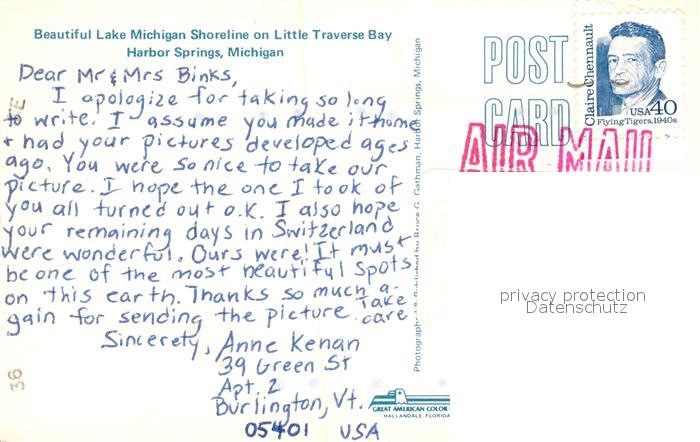 Beautiful Lake Michigan Shoreline on Little Traverse Bay
Harbor Springs, Michigan
Dear Mr & Mrs Binks,
I apologize for taking so long
to write. I assume you made it home
+ had your pictures developed ages
ago. You were so nice to take our
picture. I hope the one I took of
you all turned out o.k. I also hope
your remaining days in Switzerland
were wonderful. Ours were! It must
be one of the most beautiful spots
on this earth. Thanks so much a-
gain for sending the picture. Take
care
Sincerely, Anne Kenan
39 Green St
Apt. 2
Burlington, Vt.
05401 USA
36
GREAT AMERICAN COLOR
HALLANDALE, FLORIDA
Bruce G. Gathman, Harbor Springs, Michigan
POST
CARD
Claire Chennault
USA 40
Flying Tigers, 1940s
AIR MAIL
privacy protection
Datenschutz